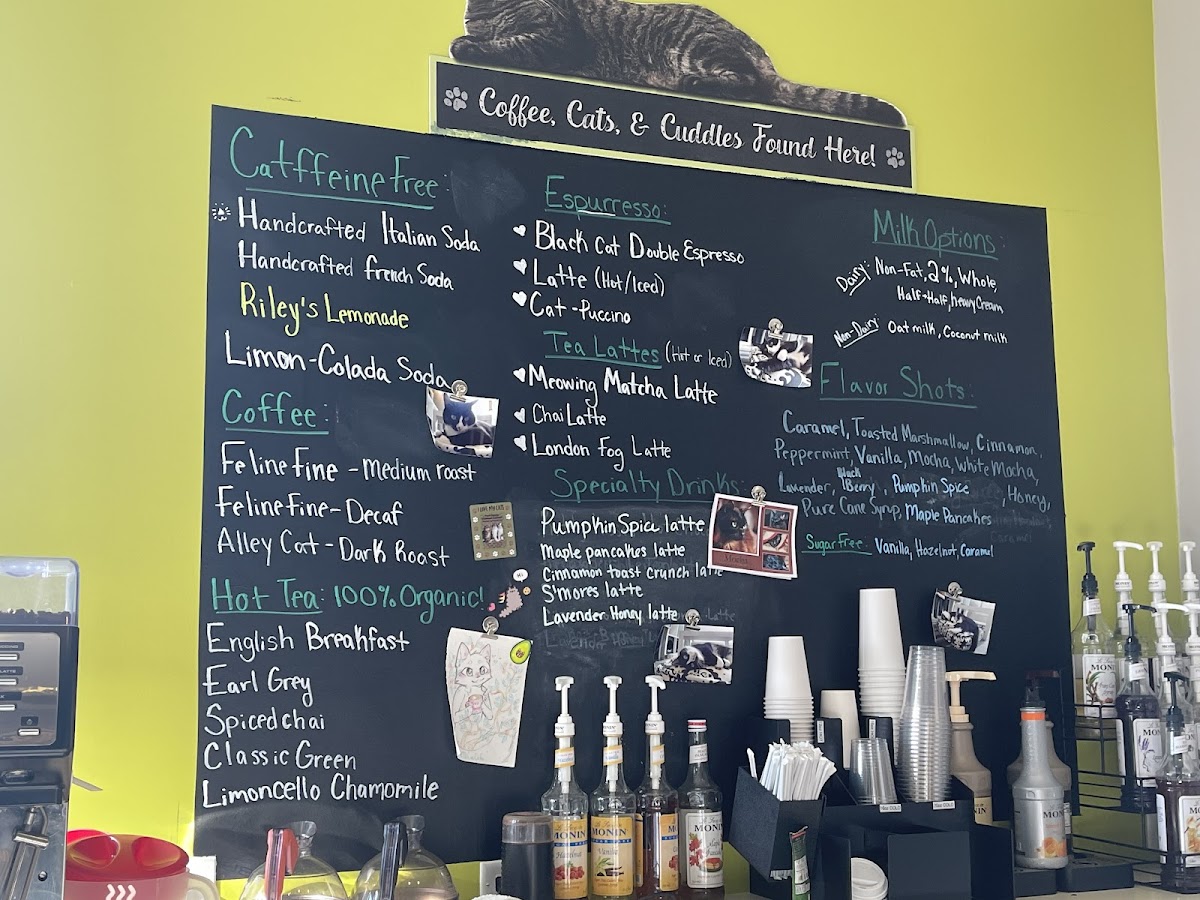 Coffee, Cats, & Cuddles Found Here!
Catffeine Free:
Handcrafted Italian Soda
Handcrafted french Soda
Riley's Lemonade
Limon-Colada Soda
Coffee:
Feline Fine - Medium roast
Feline Fine - Decaf
Alley Cat - Dark Roast
Hot Tea: 100% Organic!
English Breakfast
Earl Grey
Spiced chai
Classic Green
Limoncello Chamomile
Espurresso:
Black Cat Double Espresso
Latte (Hot/Iced)
Cat-Puccino
Tea Lattes (Hot or Iced)
Meowing Matcha Latte
Chai Latte
London Fog Latte
Specialty Drinks:
Pumpkin Spice latte
Maple pancakes latte
Cinnamon toast crunch latte
S'mores latte
Lavender Honey latte
Milk Options:
Dairy: Non-Fat, 2%, Whole,
Half+Half, heavy Cream
Non-Dairy: Oat milk, Coconut milk
Flavor Shots:
Caramel, Toasted Marshmallow, Cinnamon,
Peppermint, Vanilla, Mocha, White Mocha,
Lavender, Black Berry, Pumpkin Spice, Honey,
Pure Cane Syrup, Maple Pancakes
Sugar Free: Vanilla, Hazelnut, Caramel
I LOVE MY CATS
Hi
MONIN
MONIN
Vanilla
MONIN
MONIN
MONIN
MONIN
MONIN
MONIN